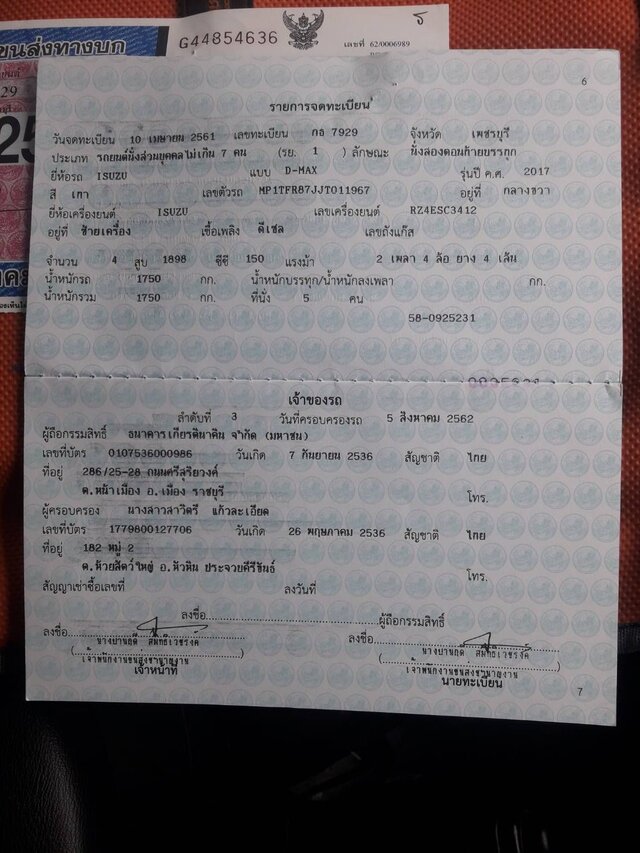 ขนส่งทางบก
G44854636
เลขที่ 62/0006989
29
6
รายการจดทะเบียน
วันจดทะเบียน 10 เมษายน 2561 เลขทะเบียน กธ 7929 จังหวัด เพชรบุรี
ประเภท รถยนต์นั่งส่วนบุคคลไม่เกิน 7 คน (รย. 1 ) ลักษณะ นั่งสองตอนท้ายบรรทุก
ยี่ห้อรถ ISUZU แบบ D-MAX รุ่นปี ค.ศ. 2017
สี เทา เลขตัวรถ MP1TFR87JJT011967 อยู่ที่ กลางขวา
ยี่ห้อเครื่องยนต์ ISUZU เลขเครื่องยนต์ RZ4ESC3412
อยู่ที่ ซ้ายเครื่อง เชื้อเพลิง ดีเซล เลขถังแก๊ส
จำนวน 4 สูบ 1898 ซีซี 150 แรงม้า 2 เพลา 4 ล้อ ยาง 4 เส้น
น้ำหนักรถ 1750 กก. น้ำหนักบรรทุก/น้ำหนักลงเพลา กก.
น้ำหนักรวม 1750 กก. ที่นั่ง 5 คน
58-0925231
เจ้าของรถ
ลำดับที่ 3 วันที่ครอบครองรถ 5 สิงหาคม 2562
ผู้ถือกรรมสิทธิ์ ธนาคารเกียรตินาคิน จำกัด (มหาชน)
เลขที่บัตร 0107536000986 วันเกิด 7 กันยายน 2536 สัญชาติ ไทย
ที่อยู่ 286/25-28 ถนนศรีสุริยวงศ์
ต.หน้าเมือง อ.เมือง ราชบุรี โทร.
ผู้ครอบครอง นางสาวสาวิตรี แก้วละเอียด
เลขที่บัตร 1779800127706 วันเกิด 26 พฤษภาคม 2536 สัญชาติ ไทย
ที่อยู่ 182 หมู่ 2
ต.ห้วยสัตว์ใหญ่ อ.หัวหิน ประจวบคีรีขันธ์ โทร.
สัญญาเช่าซื้อเลขที่ ลงวันที่
ลงชื่อ ผู้ถือกรรมสิทธิ์
ลงชื่อ ลงชื่อ
เจ้าพนักงานขนส่งชำนาญงาน เจ้าพนักงานขนส่งชำนาญงาน
เจ้าหน้าที่ นายทะเบียน
7